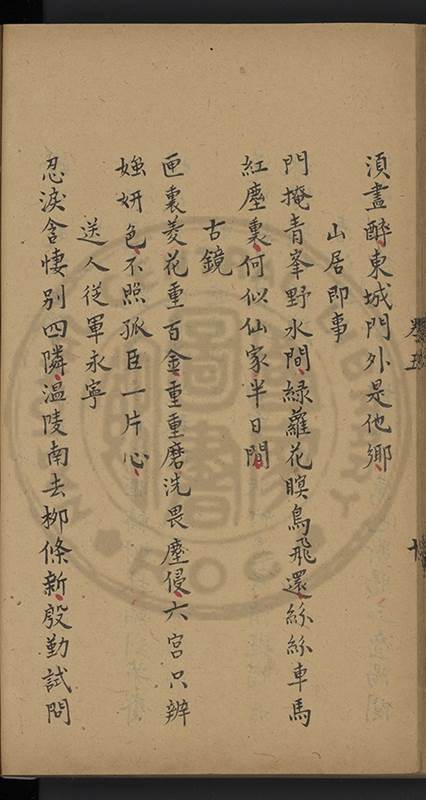 須盡醉東城門外是他鄉
山居即事
門掩青峯野水間綠蘿花暝鳥飛還絲絲車馬
紅塵裏何似仙家半日閒
古鏡
匣裏菱花重百金重重磨洗畏塵侵六宮只辨
媸妍色不照孤臣一片心
送人從軍永寧
忍淚含悽別四隣溫陵南去柳條新殷勤試問